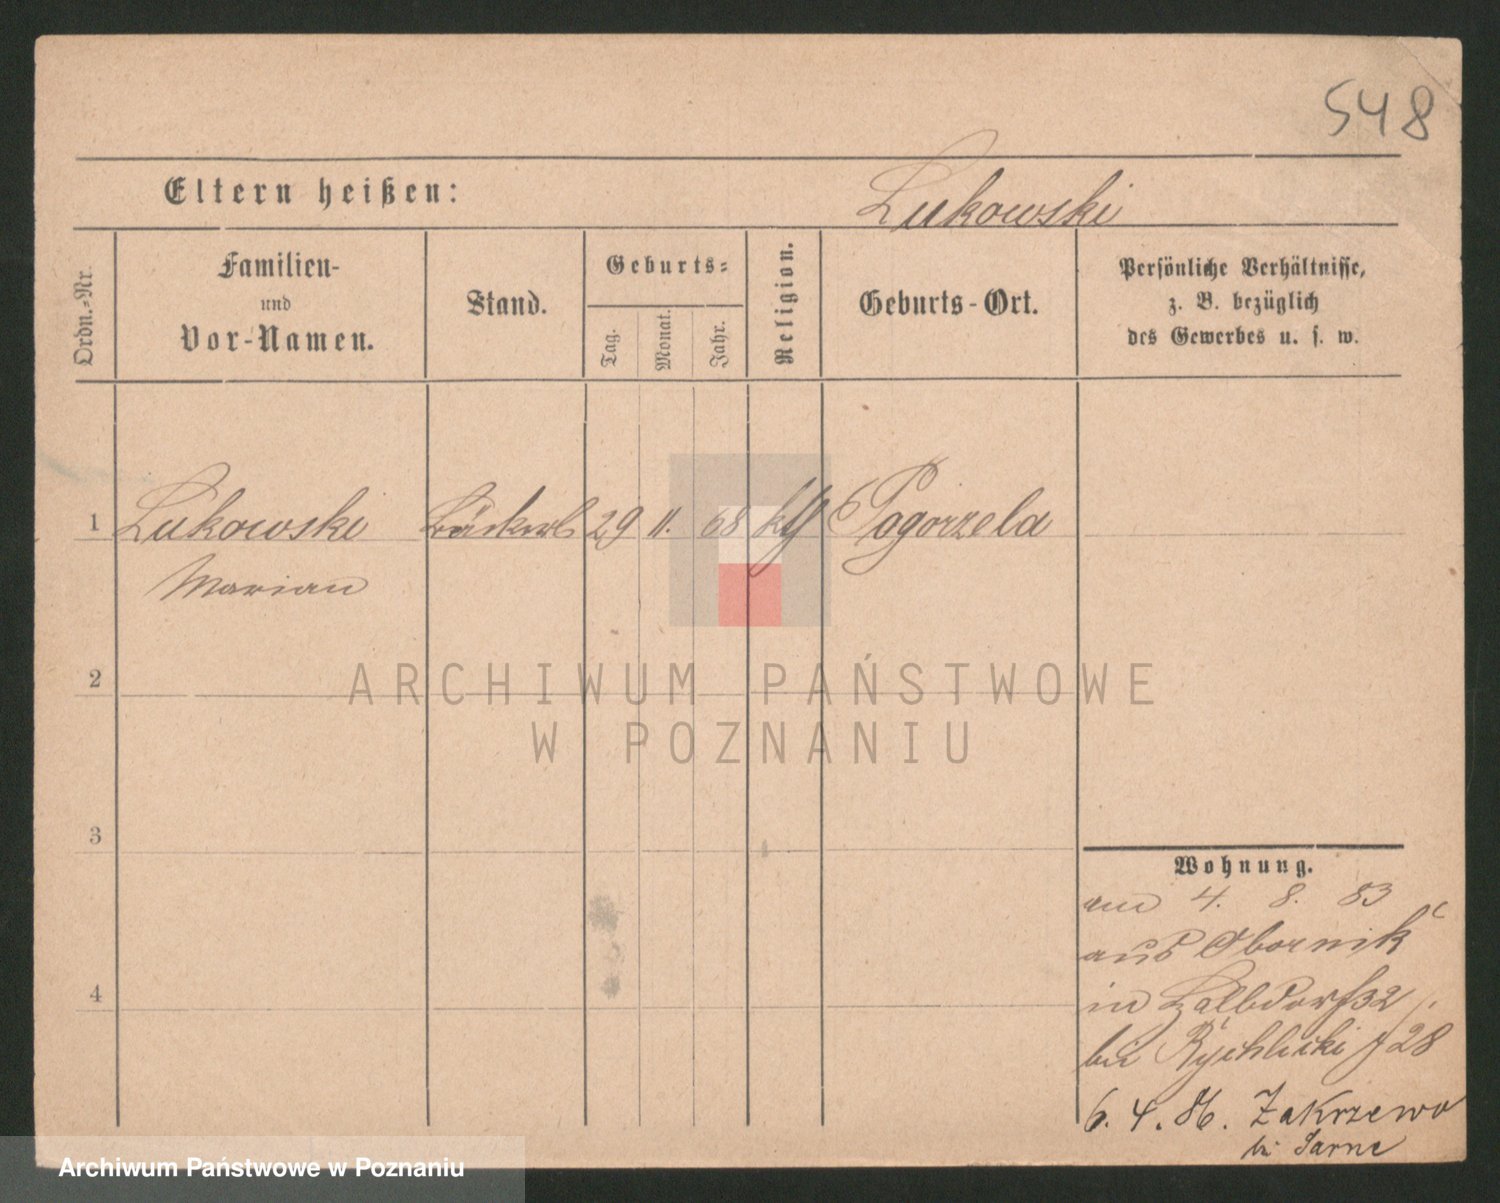 548
Eltern heißen:
Lukowski
Ordn.-Nr.
Familien-
und
Vor-Namen.
Stand.
Geburts-
Tag.
Monat.
Jahr.
Religion.
Geburts-Ort.
Persönliche Verhältnisse,
z. B. bezüglich
des Gewerbes u. s. w.
1 Lukowski 29 11. 68 kth Pogorzela
Marian
2
3
4
Wohnung.
am 4. 8. 83
aus Obornik
in 32
bei Rychlicki 28
6. 4. 86. Zakrzewo
bei Sarne
ARCHIWUM PAŃSTWOWE
W POZNANIU
Archiwum Państwowe w Poznaniu